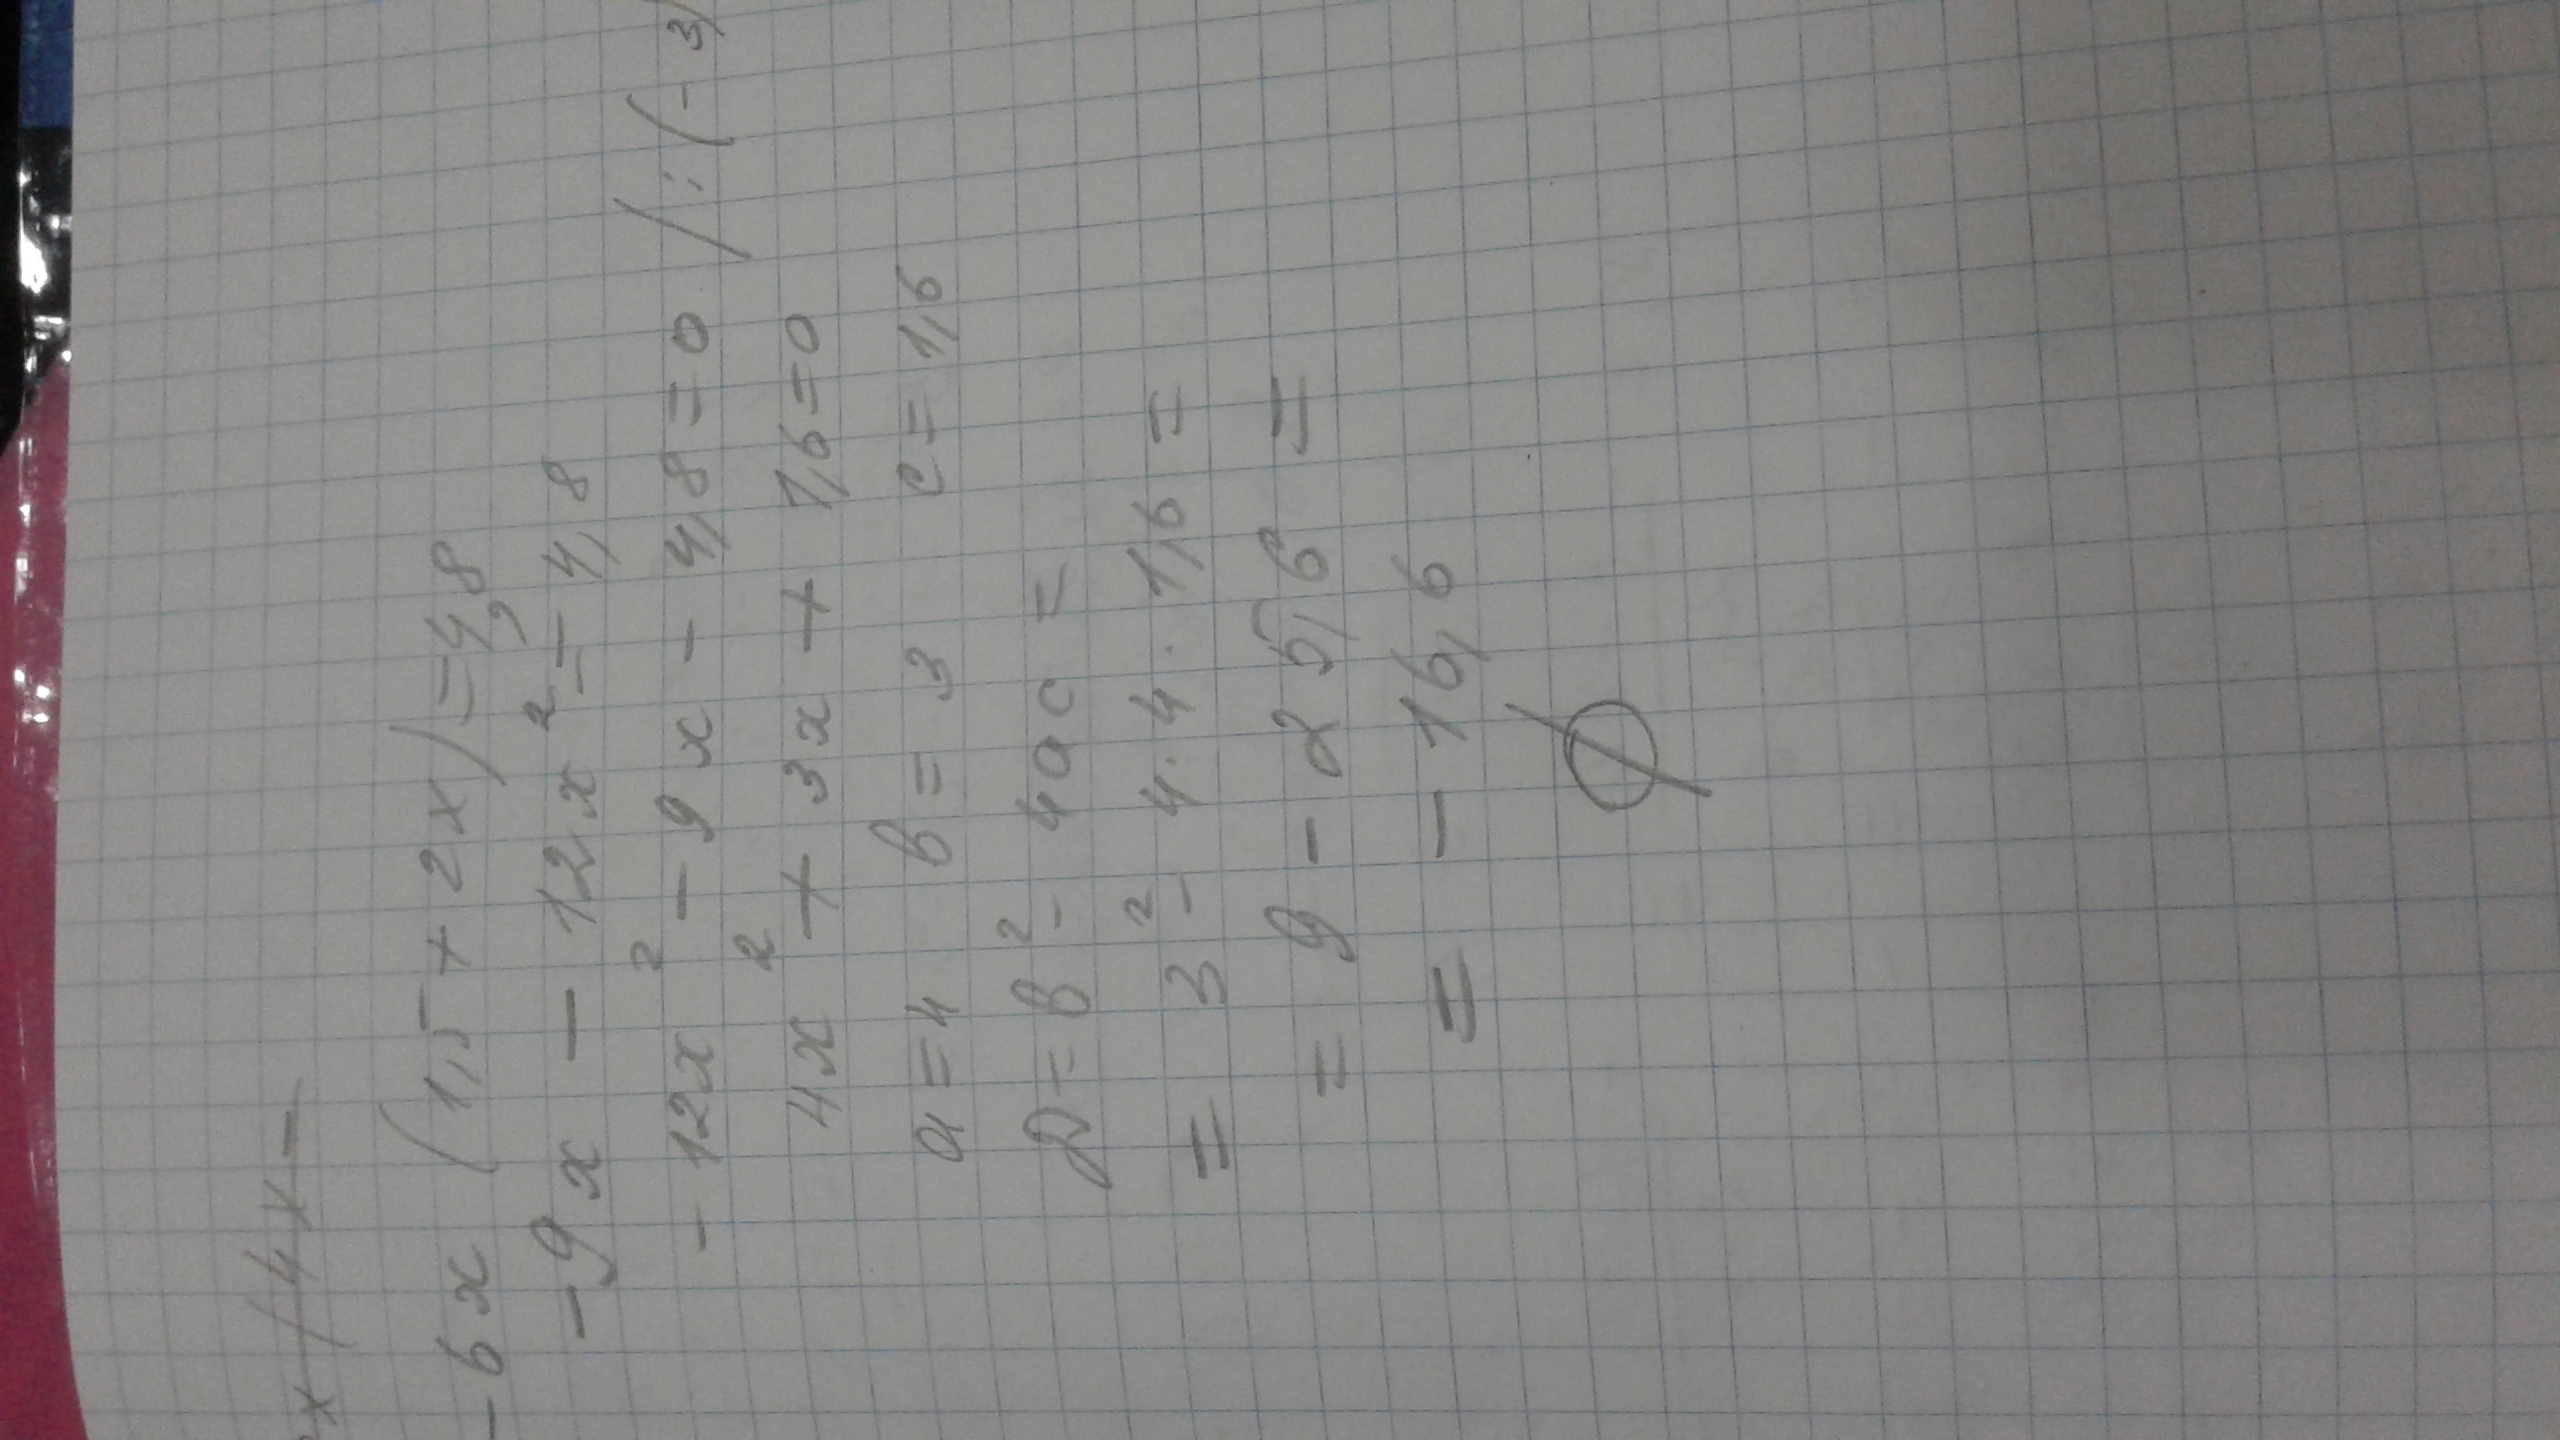 x (4x -
- 6x (1,5 + 2x) = 4,8
- 9x - 12x² = 4,8
- 12x² - 9x - 4,8 = 0 / : (-3)
4x² + 3x + 1,6 = 0
a = 4 b = 3 c = 1,6
D = b² - 4ac =
= 3² - 4 · 4 · 1,6 =
= 9 - 25,6 =
= - 16,6
∅